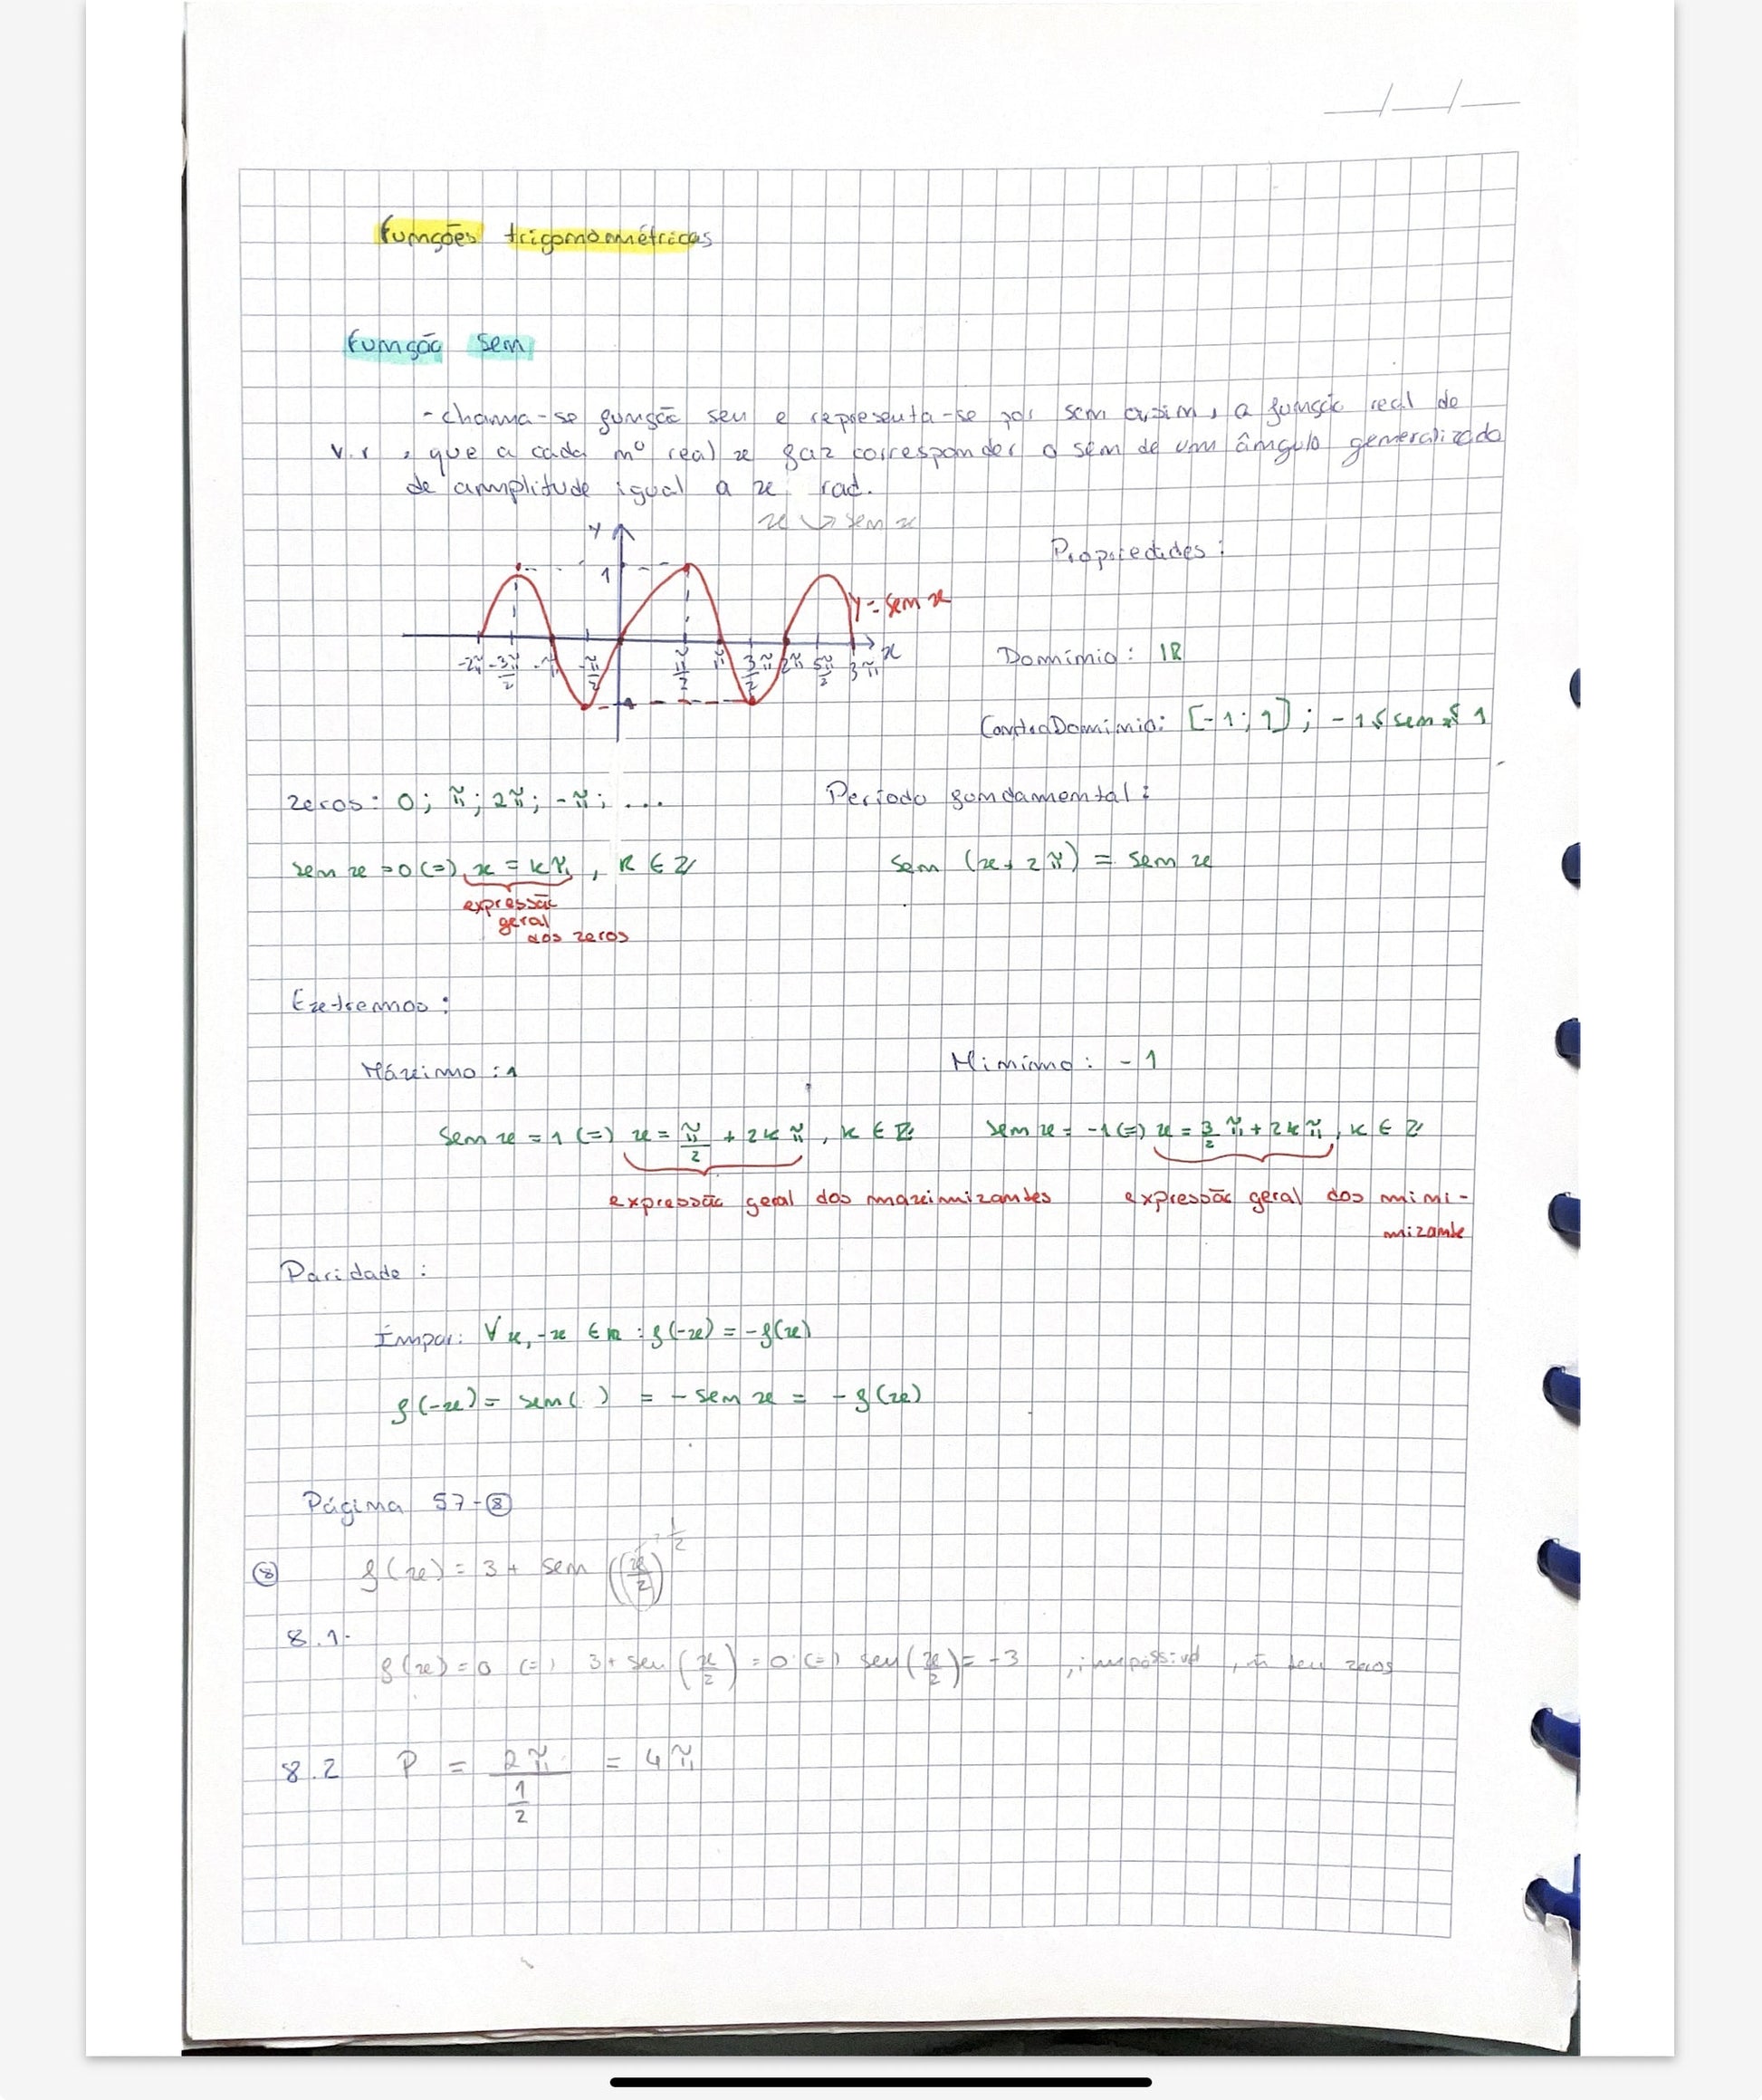 __/__/__
Funções trigonométricas
Função sen
- chama-se função seu e representa-se por sen assim, a função real de
v.r , que a cada nº real x faz corresponder o sen de um ângulo generalizado
de amplitude igual a x rad.
x ↪ sen x
y
1
y = sen x
x
-2π -3π/2 -π -π/2 π/2 π 3π/2 2π 5π/2 3π
-1
Propriedades:
Domínio: IR
ContraDomínio: [-1; 1] ; -1 ≤ sen x ≤ 1
zeros: 0; π; 2π; -π; ...
Período fundamental:
sen x = 0 (=) x = kπ, k ∈ Z
sen (x + 2π) = sen x
expressão
geral
dos zeros
Extremos:
Máximo : 1
Mínimo: -1
sen x = 1 (=) x = π/2 + 2kπ, k ∈ Z
sen x = -1 (=) x = 3/2 π + 2kπ, k ∈ Z
expressão geral dos maximizantes
expressão geral dos mini-
mizante
Paridade:
Ímpar: ∀ x, -x ∈ IR : f(-x) = -f(x)
f(-x) = sen( ) = - sen x = - f(x)
Página 57-⑧
⑧ f(x) = 3 + sen (x/2) 1/2
8.1.
f(x) = 0 (=) 3 + sen (x/2) = 0 (=) sen (x/2) = -3 , impossível , ñ tem zeros
8.2 P = 2π / 1/2 = 4π